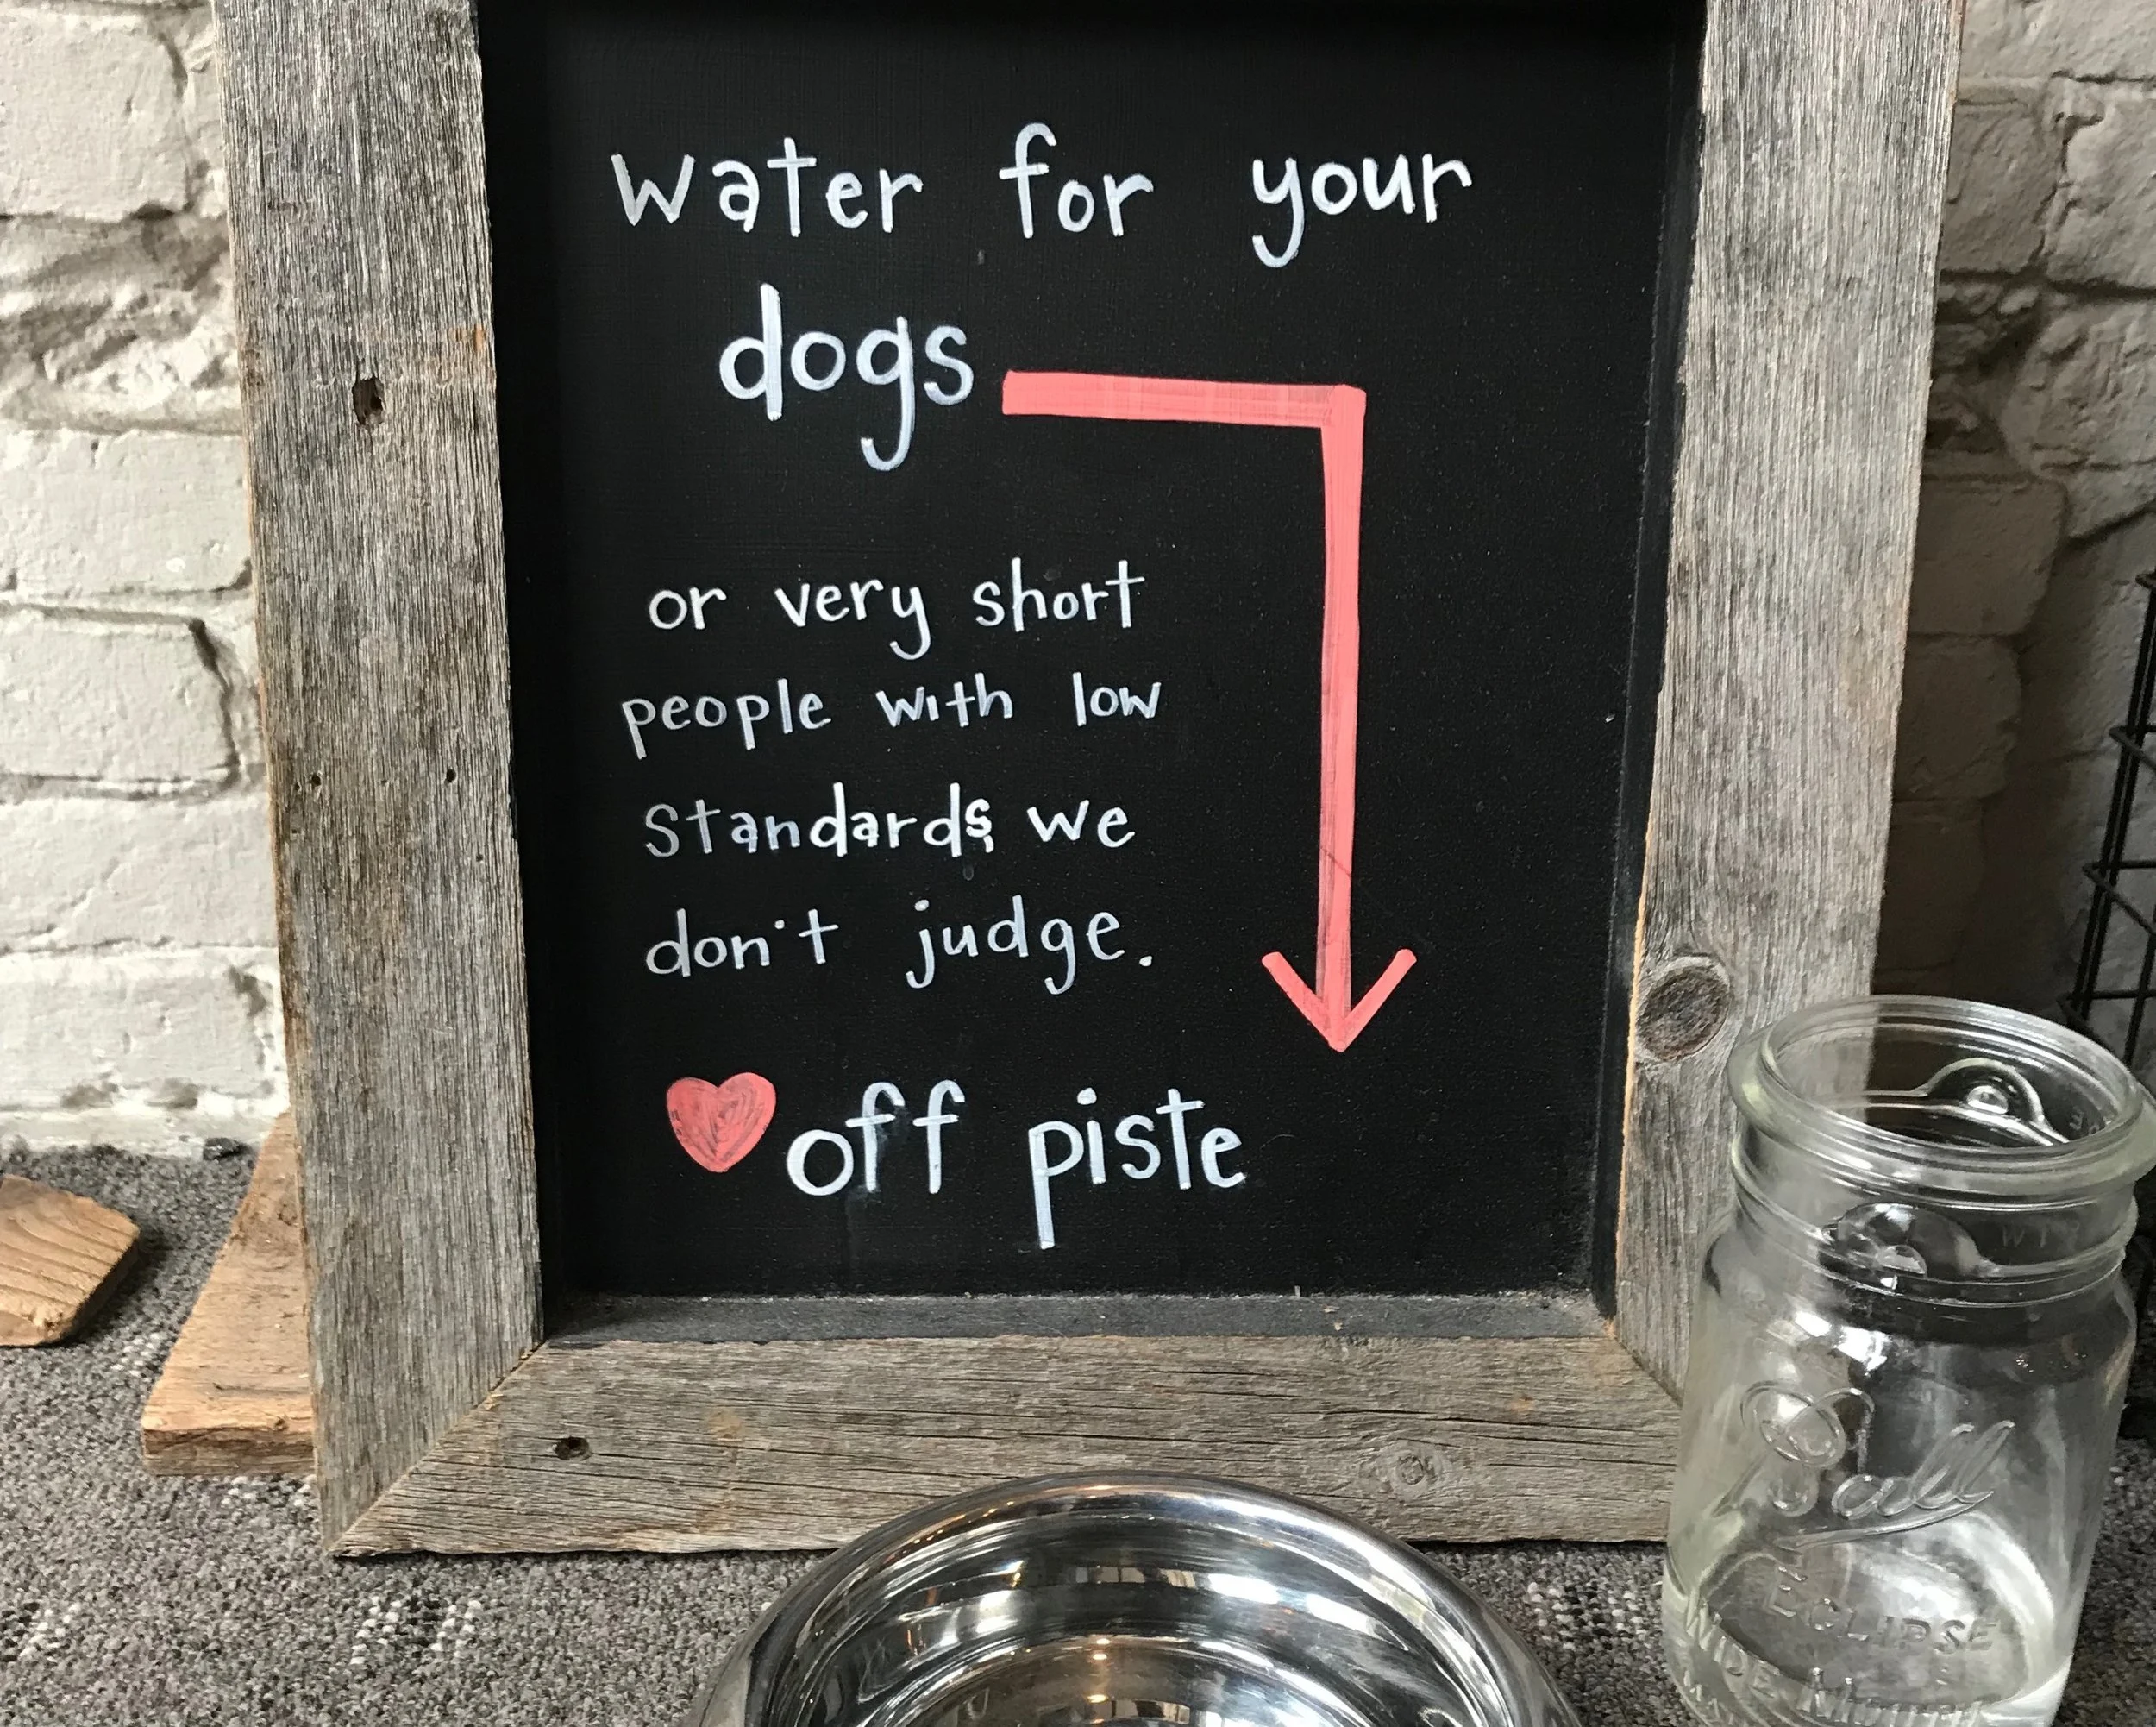 water for your
dogs
or very short
people with low
Standards, we
don't judge.
off piste
Ball
ECLIPSE
WIDE MOUTH